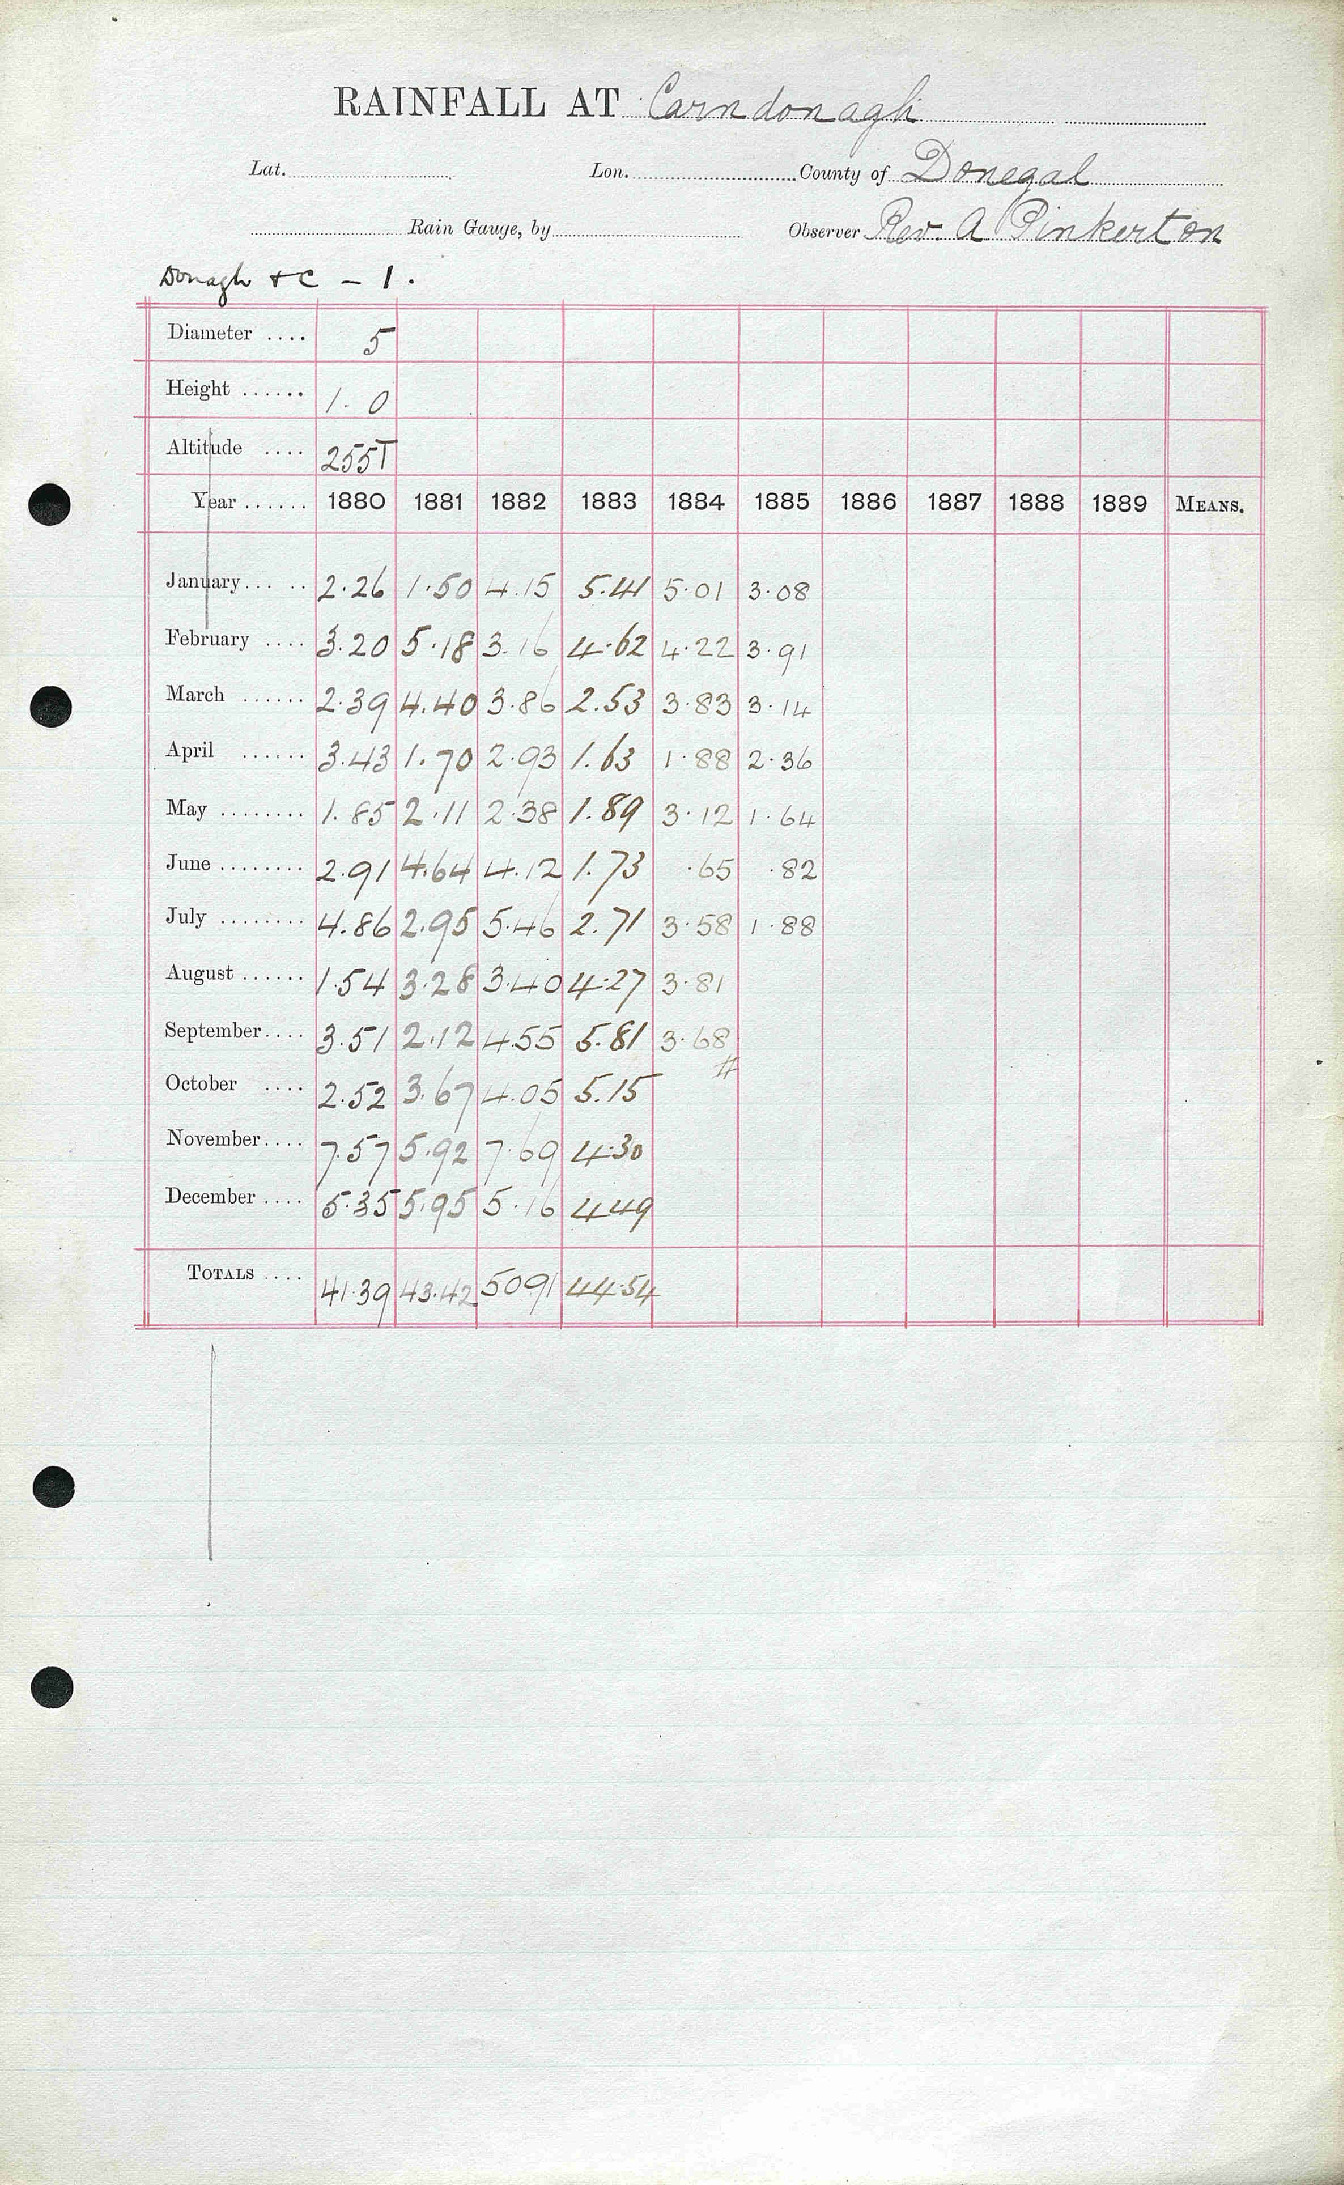 RAINFALL AT Carndonagh
Lat. Lon. County of Donegal
Rain Gauge, by Observer Rev. A Pinkerton
Donagh + C - 1.
Diameter .... 5
Height ...... 1. 0
Altitude .... 255T
Year ...... 1880 1881 1882 1883 1884 1885 1886 1887 1888 1889 MEANS.
January ..... 2.26 1.50 4.15 5.41 5.01 3.08
February .... 3.20 5.18 3.16 4.62 4.22 3.91
March ...... 2.39 4.40 3.86 2.53 3.83 3.14
April ...... 3.43 1.70 2.93 1.63 1.88 2.36
May ........ 1.85 2.11 2.38 1.89 3.12 1.64
June ........ 2.91 4.64 4.12 1.73 .65 .82
July ........ 4.86 2.95 5.46 2.71 3.58 1.88
August ...... 1.54 3.28 3.40 4.27 3.81
September .... 3.51 2.12 4.55 5.81 3.68
#
October .... 2.52 3.67 4.05 5.15
November .... 7.57 5.92 7.69 4.30
December .... 5.35 5.95 5.16 4.49
TOTALS .... 41.39 43.42 50.91 44.54